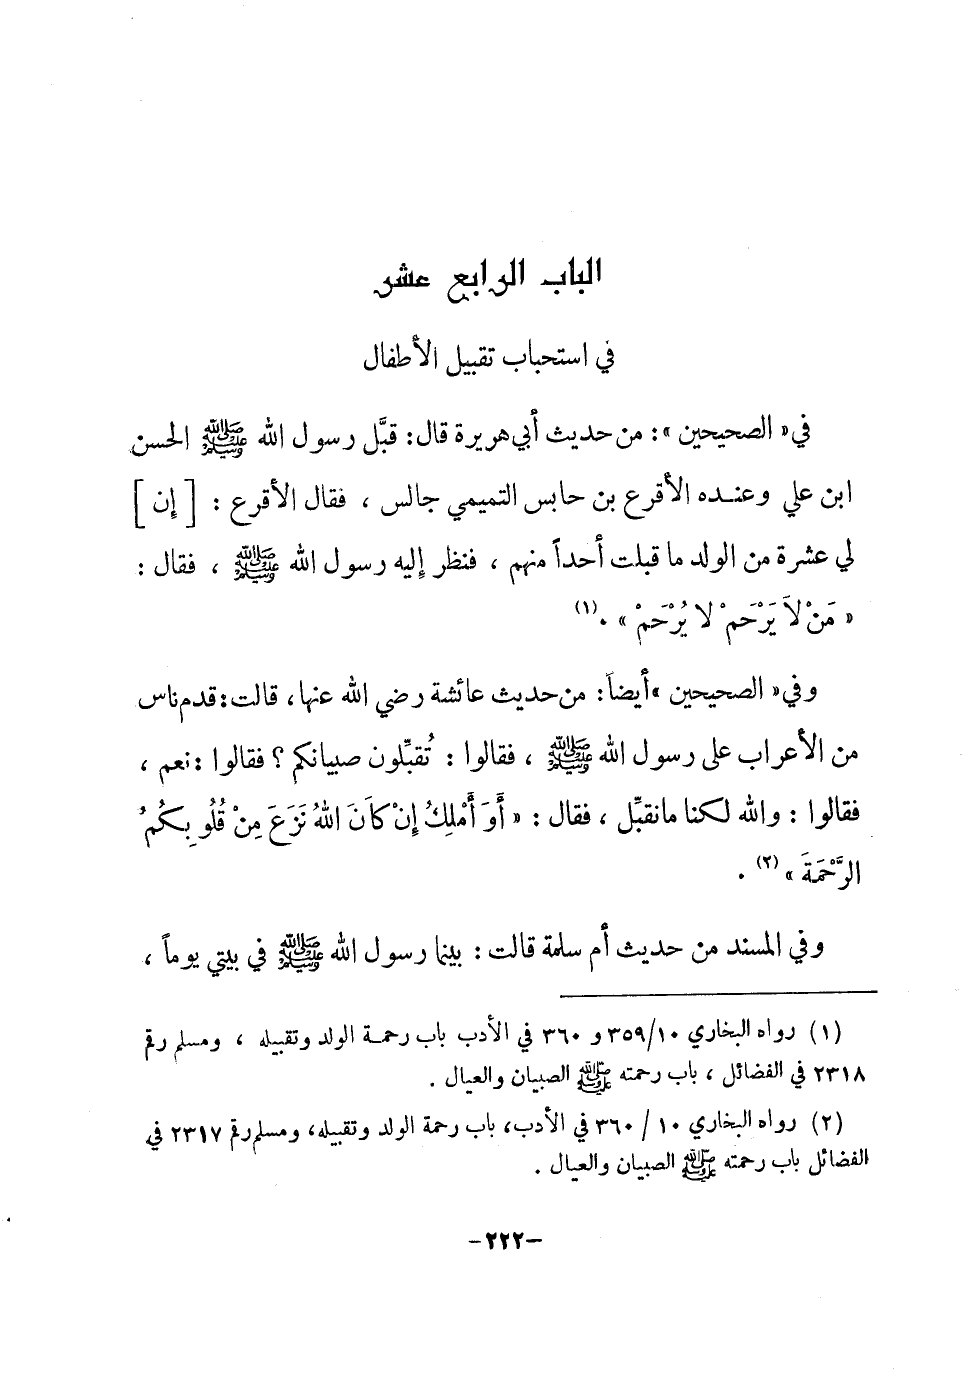 الباب الرابع عشر
في استحباب تقبيل الأطفال
في « الصحيحين » : من حديث أبي هريرة قال : قبَّل رسول الله ﷺ الحسن
ابن علي وعنده الأقرع بن حابس التميمي جالس ، فقال الأقرع : [ إن ]
لي عشرة من الولد ما قبلت أحداً منهم ، فنظر إليه رسول الله ﷺ ، فقال :
« مَنْ لاَ يَرْحَمْ لا يُرْحَمْ » .(١)
وفي « الصحيحين » أيضاً : من حديث عائشة رضي الله عنها ، قالت : قدم ناس
من الأعراب على رسول الله ﷺ ، فقالوا : تُقبِّلون صبيانكم ؟ فقالوا : نعم ،
فقالوا : والله لكنا ما نقبِّل ، فقال : « أَوَ أَمْلِكُ إِنْ كَانَ اللهُ نَزَعَ مِنْ قُلُوبِكُمُ
الرَّحْمَةَ » (٢) .
وفي المسند من حديث أم سلمة قالت : بينما رسول الله ﷺ في بيتي يوماً ،
(١) رواه البخاري ٣٥٩/١٠ و ٣٦٠ في الأدب باب رحمة الولد وتقبيله ، ومسلم رقم
٢٣١٨ في الفضائل ، باب رحمته ﷺ الصبيان والعيال .
(٢) رواه البخاري ١٠ / ٣٦٠ في الأدب، باب رحمة الولد وتقبيله، ومسلم رقم ٢٣١٧ في
الفضائل باب رحمته ﷺ الصبيان والعيال .
-٢٢٢-